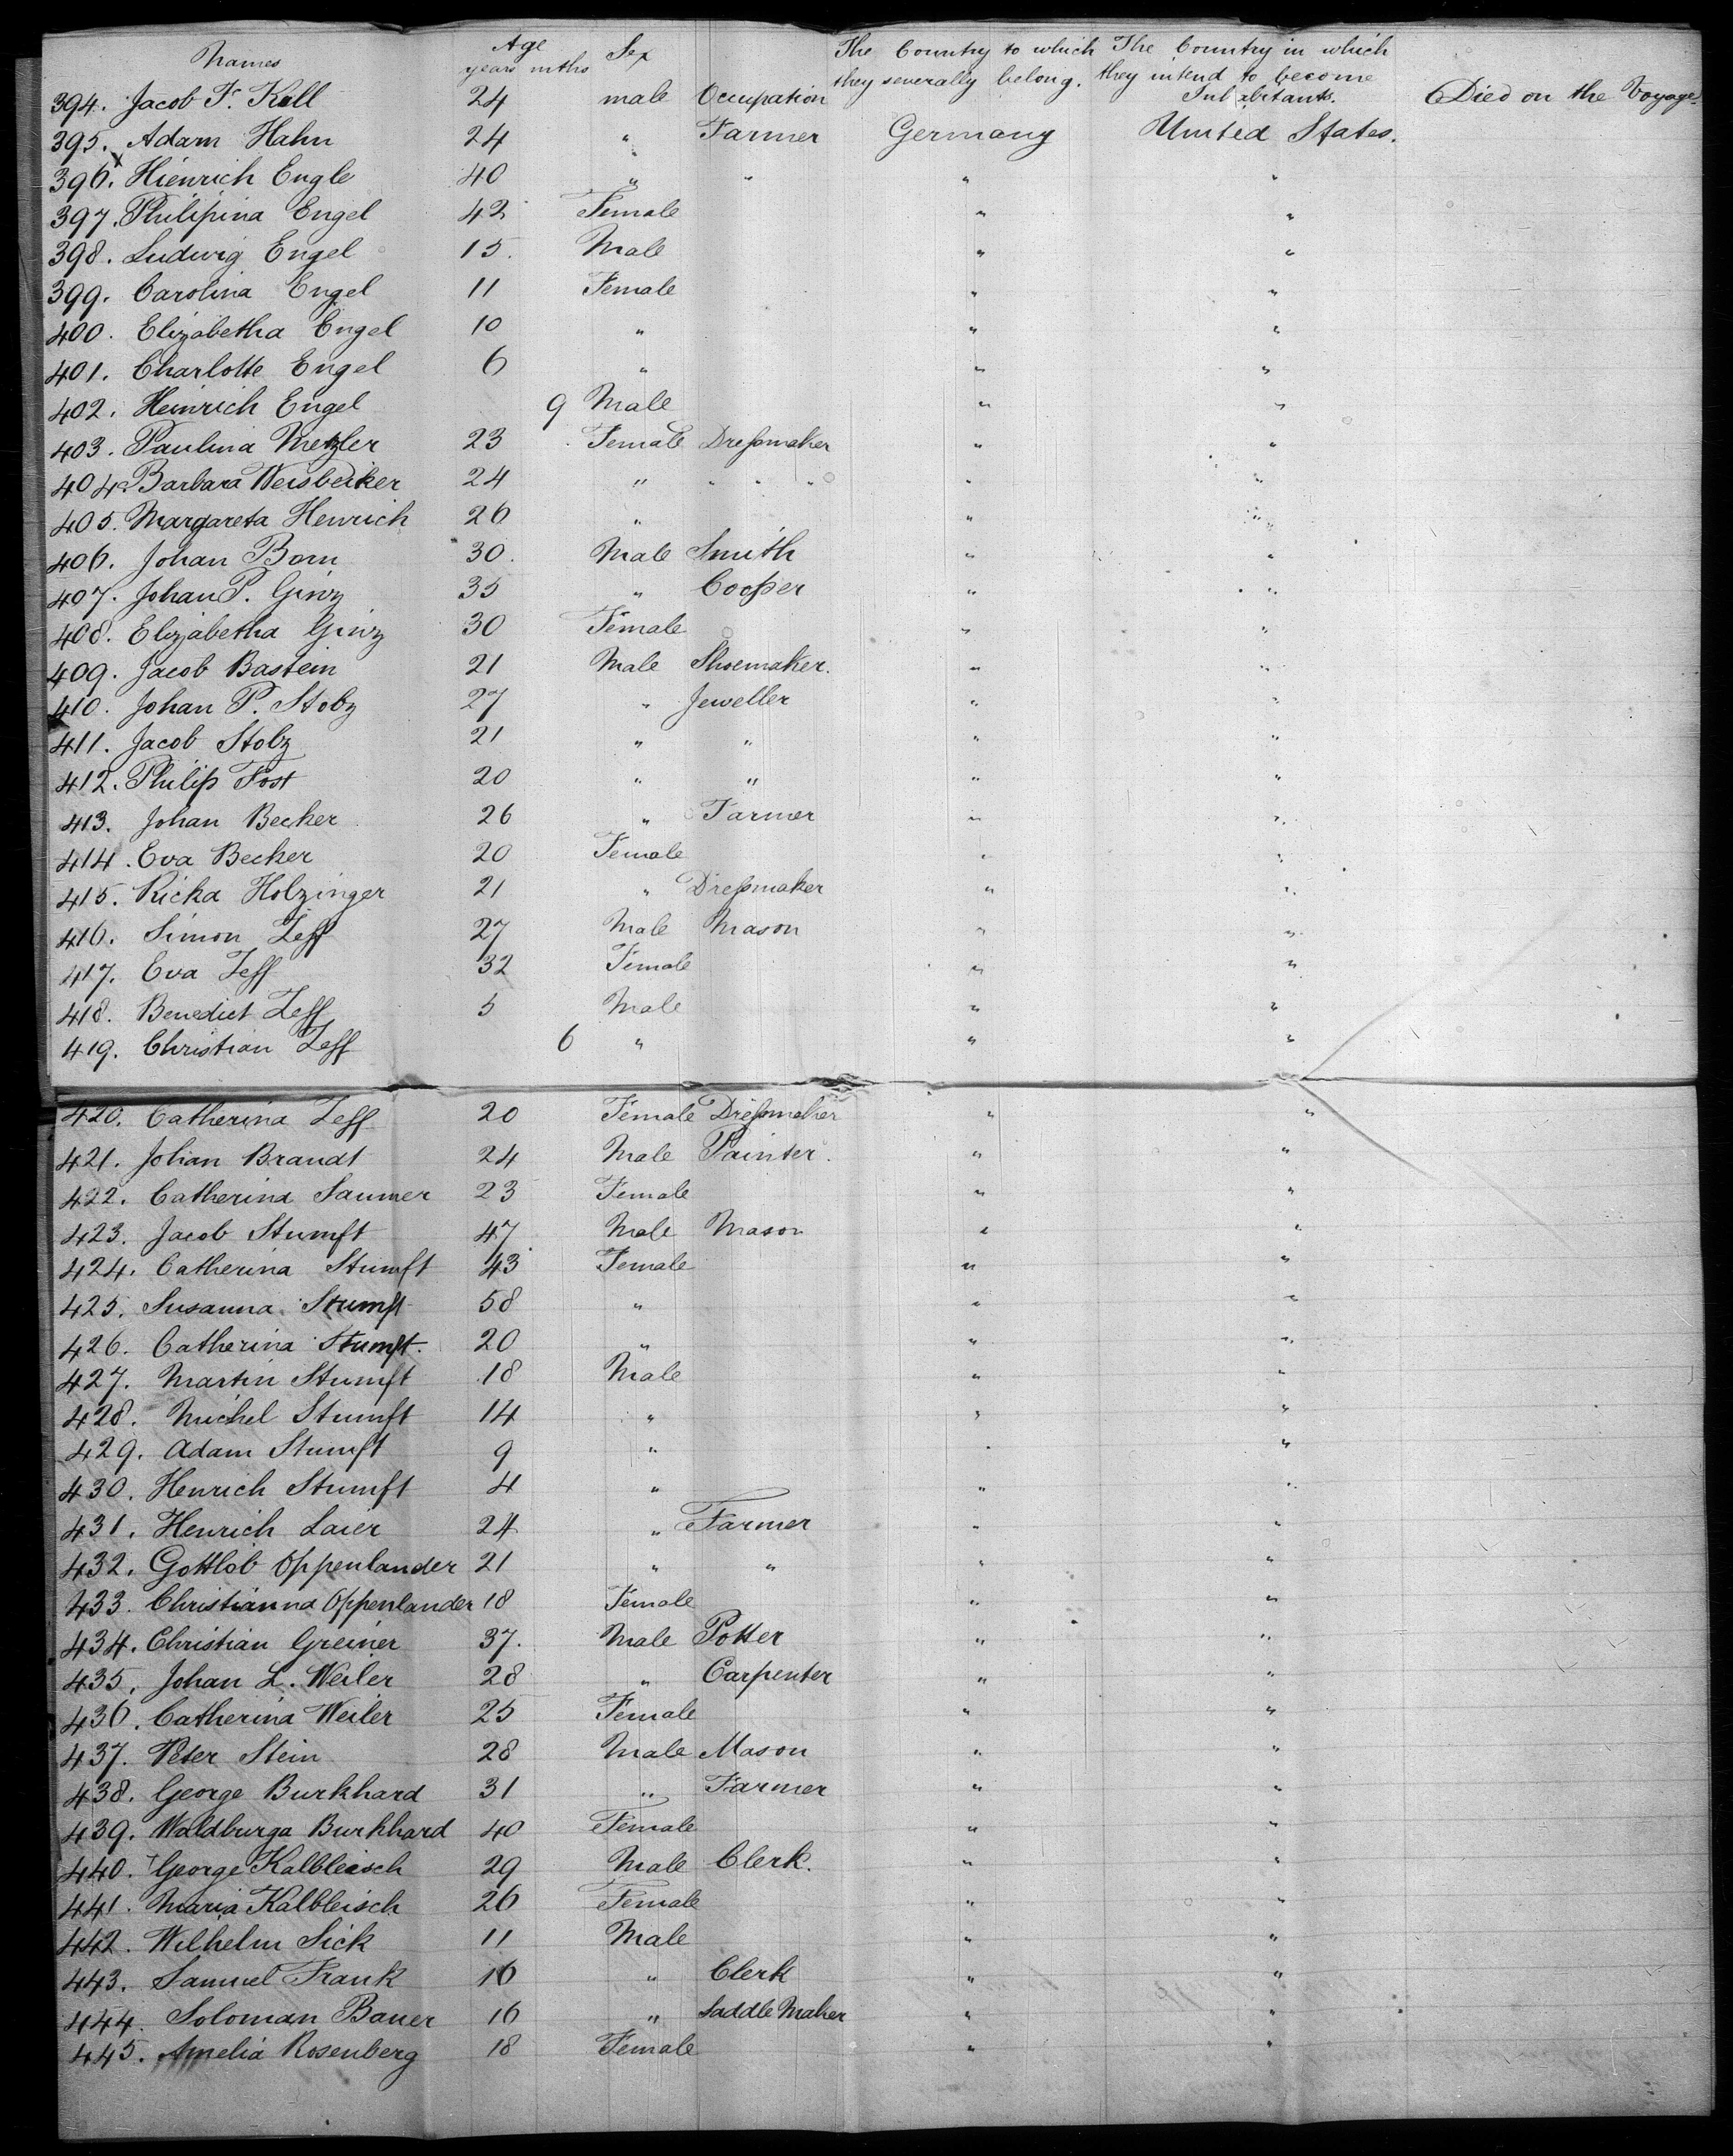 Names Age years mths Sex The Country to which they severally belong. The Country in which they intend to become Inhabitants. Died on the Voyage.
394. Jacob F. Kall 24 male Occupation
395. Adam Hahn 24 " Farmer Germany United States.
396. Hienrich Engle 40 " " " "
397. Philipina Engel 42 Female " "
398. Ludwig Engel 15. Male " "
399. Carolina Engel 11 Female " "
400. Elizabetha Engel 10 " " "
401. Charlotte Engel 6 " " "
402. Heinrich Engel 9 Male " "
403. Paulina Metzler 23 Female Dressmaker " "
404. Barbara Weisbecker 24 " " " " " "
405. Margareta Henrich 26 " " "
406. Johan Born 30. Male Smith " "
407. Johan P. Ginz 35 " Cooper " "
408. Elizabetha Ginz 30 Female " "
409. Jacob Bastein 21 Male Shoemaker. " "
410. Johan P. Stolz 27 " Jeweller " "
411. Jacob Stolz 21 " " " "
412. Philip Fost 20 " " " "
413. Johan Becker 26 " Farmer " "
414. Eva Becker 20 Female " "
415. Ricka Holzinger 21 " Dressmaker " "
416. Simon Zeff 27 Male Mason " "
417. Eva Zeff 32 Female " "
418. Benedict Zeff 5 Male " "
419. Christian Zeff 6 " " "
420. Catherina Zeff 20 Female Dressmaker " "
421. Johan Brandt 24 Male Painter. " "
422. Catherina Saumer 23 Female " "
423. Jacob Stumft 47 Male Mason " "
424. Catherina Stumft 43 Female " "
425. Susanna Stumft 58 " " "
426. Catherina Stumft. 20 " " "
427. Martin Stumft 18 Male " "
428. Michel Stumft 14 " " "
429. Adam Stumft 9 " " "
430. Henrich Stumft 4 " " "
431. Henrich Laier 24 " Farmer " "
432. Gottlob Oppenlander 21 " " " "
433. Christianna Oppenlander 18 Female " "
434. Christian Greiner 37. Male Potter " "
435. Johan L. Weiler 28 " Carpenter " "
436. Catherina Weiler 25 Female " "
437. Peter Stein 28 Male Mason " "
438. George Burkhard 31 " Farmer " "
439. Waldburga Burkhard 40 Female " "
440. George Kalbleisch 29 Male Clerk. " "
441. Maria Kalbleisch 26 Female " "
442. Wilhelm Sick 11 Male " "
443. Samuel Frank 16 " Clerk " "
444. Soloman Bauer 16 " Saddle Maker " "
445. Amelia Rosenberg 18 Female " "